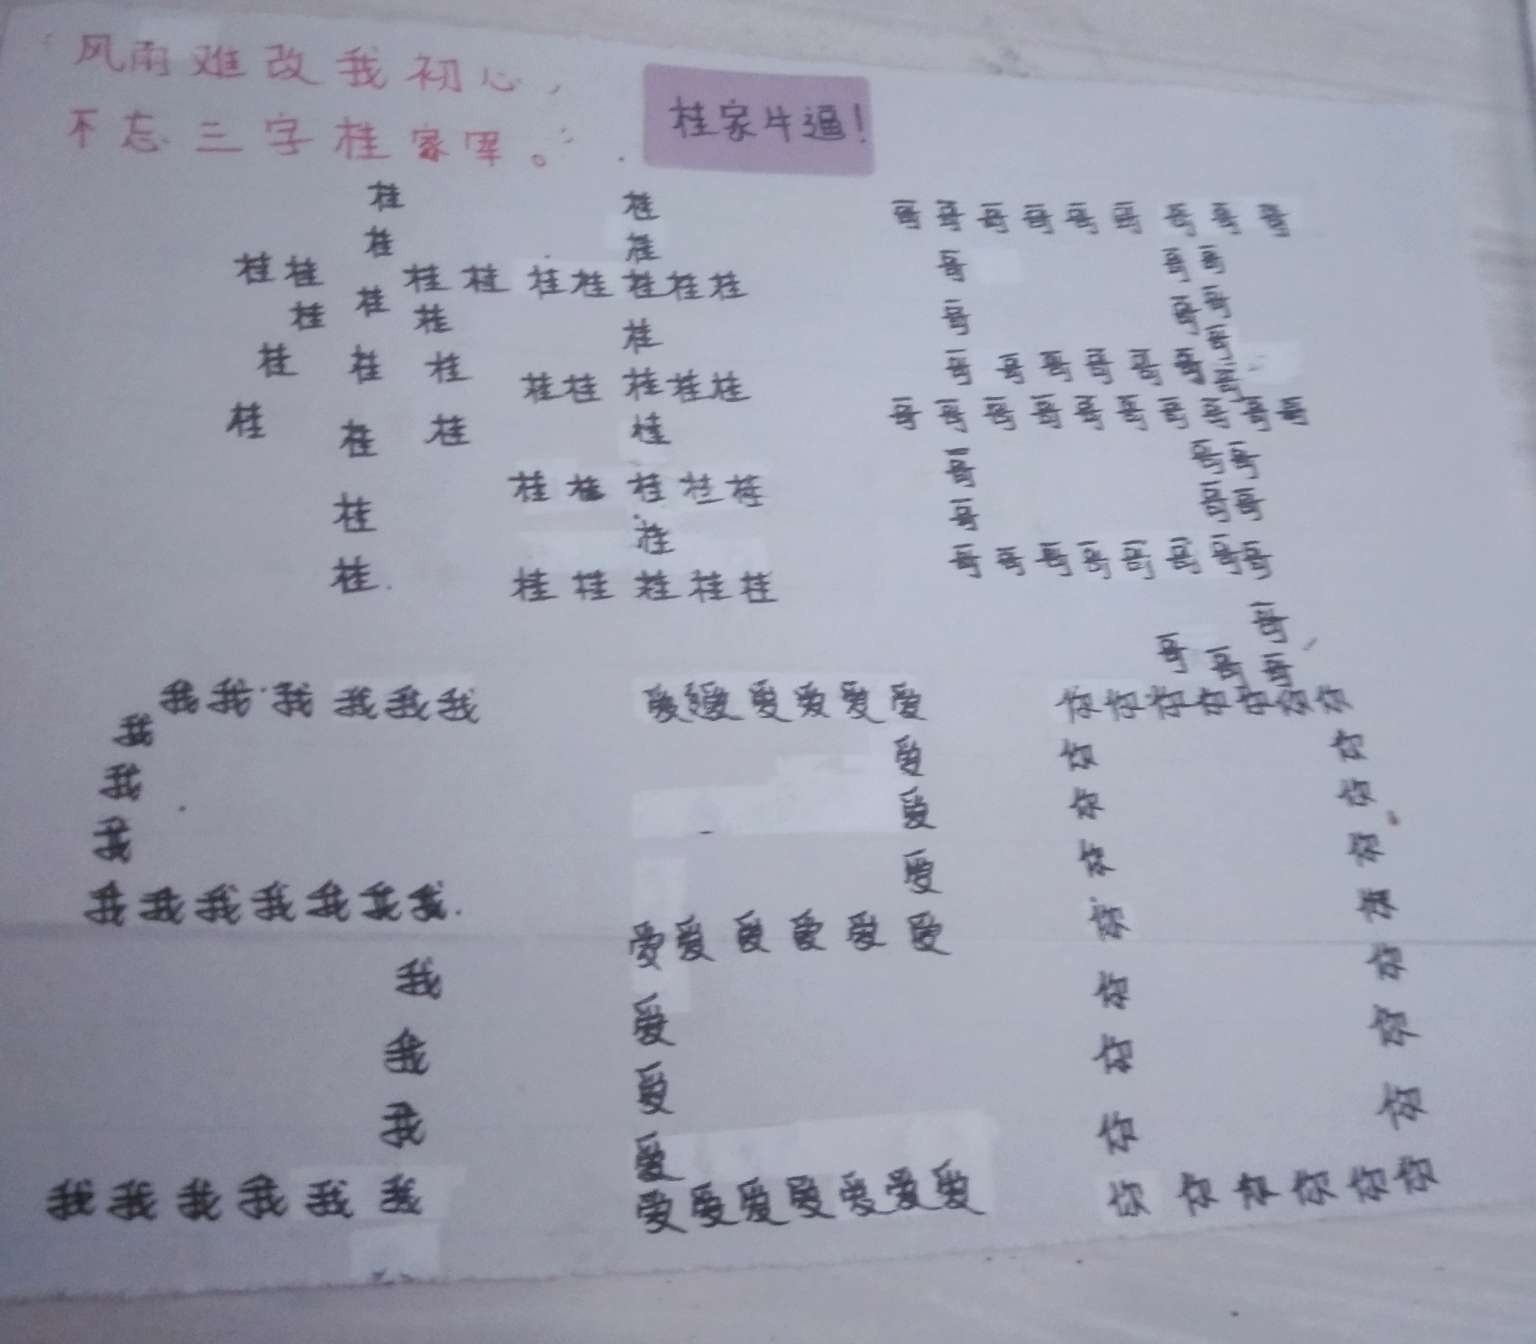 风雨难改我初心，
不忘三字桂家军。
桂家牛逼！
桂 桂
桂 桂
桂桂 桂桂 桂桂桂桂桂
桂 桂 桂
桂
桂 桂 桂
桂桂桂桂桂
桂 桂 桂
桂
桂桂桂桂桂
桂
桂
桂 桂桂桂桂桂
哥哥哥哥哥哥哥哥哥
哥 哥哥
哥 哥哥
哥
哥哥哥哥哥哥哥
哥哥哥哥哥哥哥哥哥哥
哥 哥哥
哥 哥哥
哥哥哥哥哥哥哥哥
哥
哥哥哥
我我我我我我
我
我
我
我我我我我我我
我
我
我
我我我我我我
爱爱爱爱爱爱
爱
爱
爱
爱爱爱爱爱爱
爱
爱
爱
爱爱爱爱爱爱爱
你你你你你你你
你 你
你 你
你 你
你 你
你 你
你 你
你 你
你你你你你你